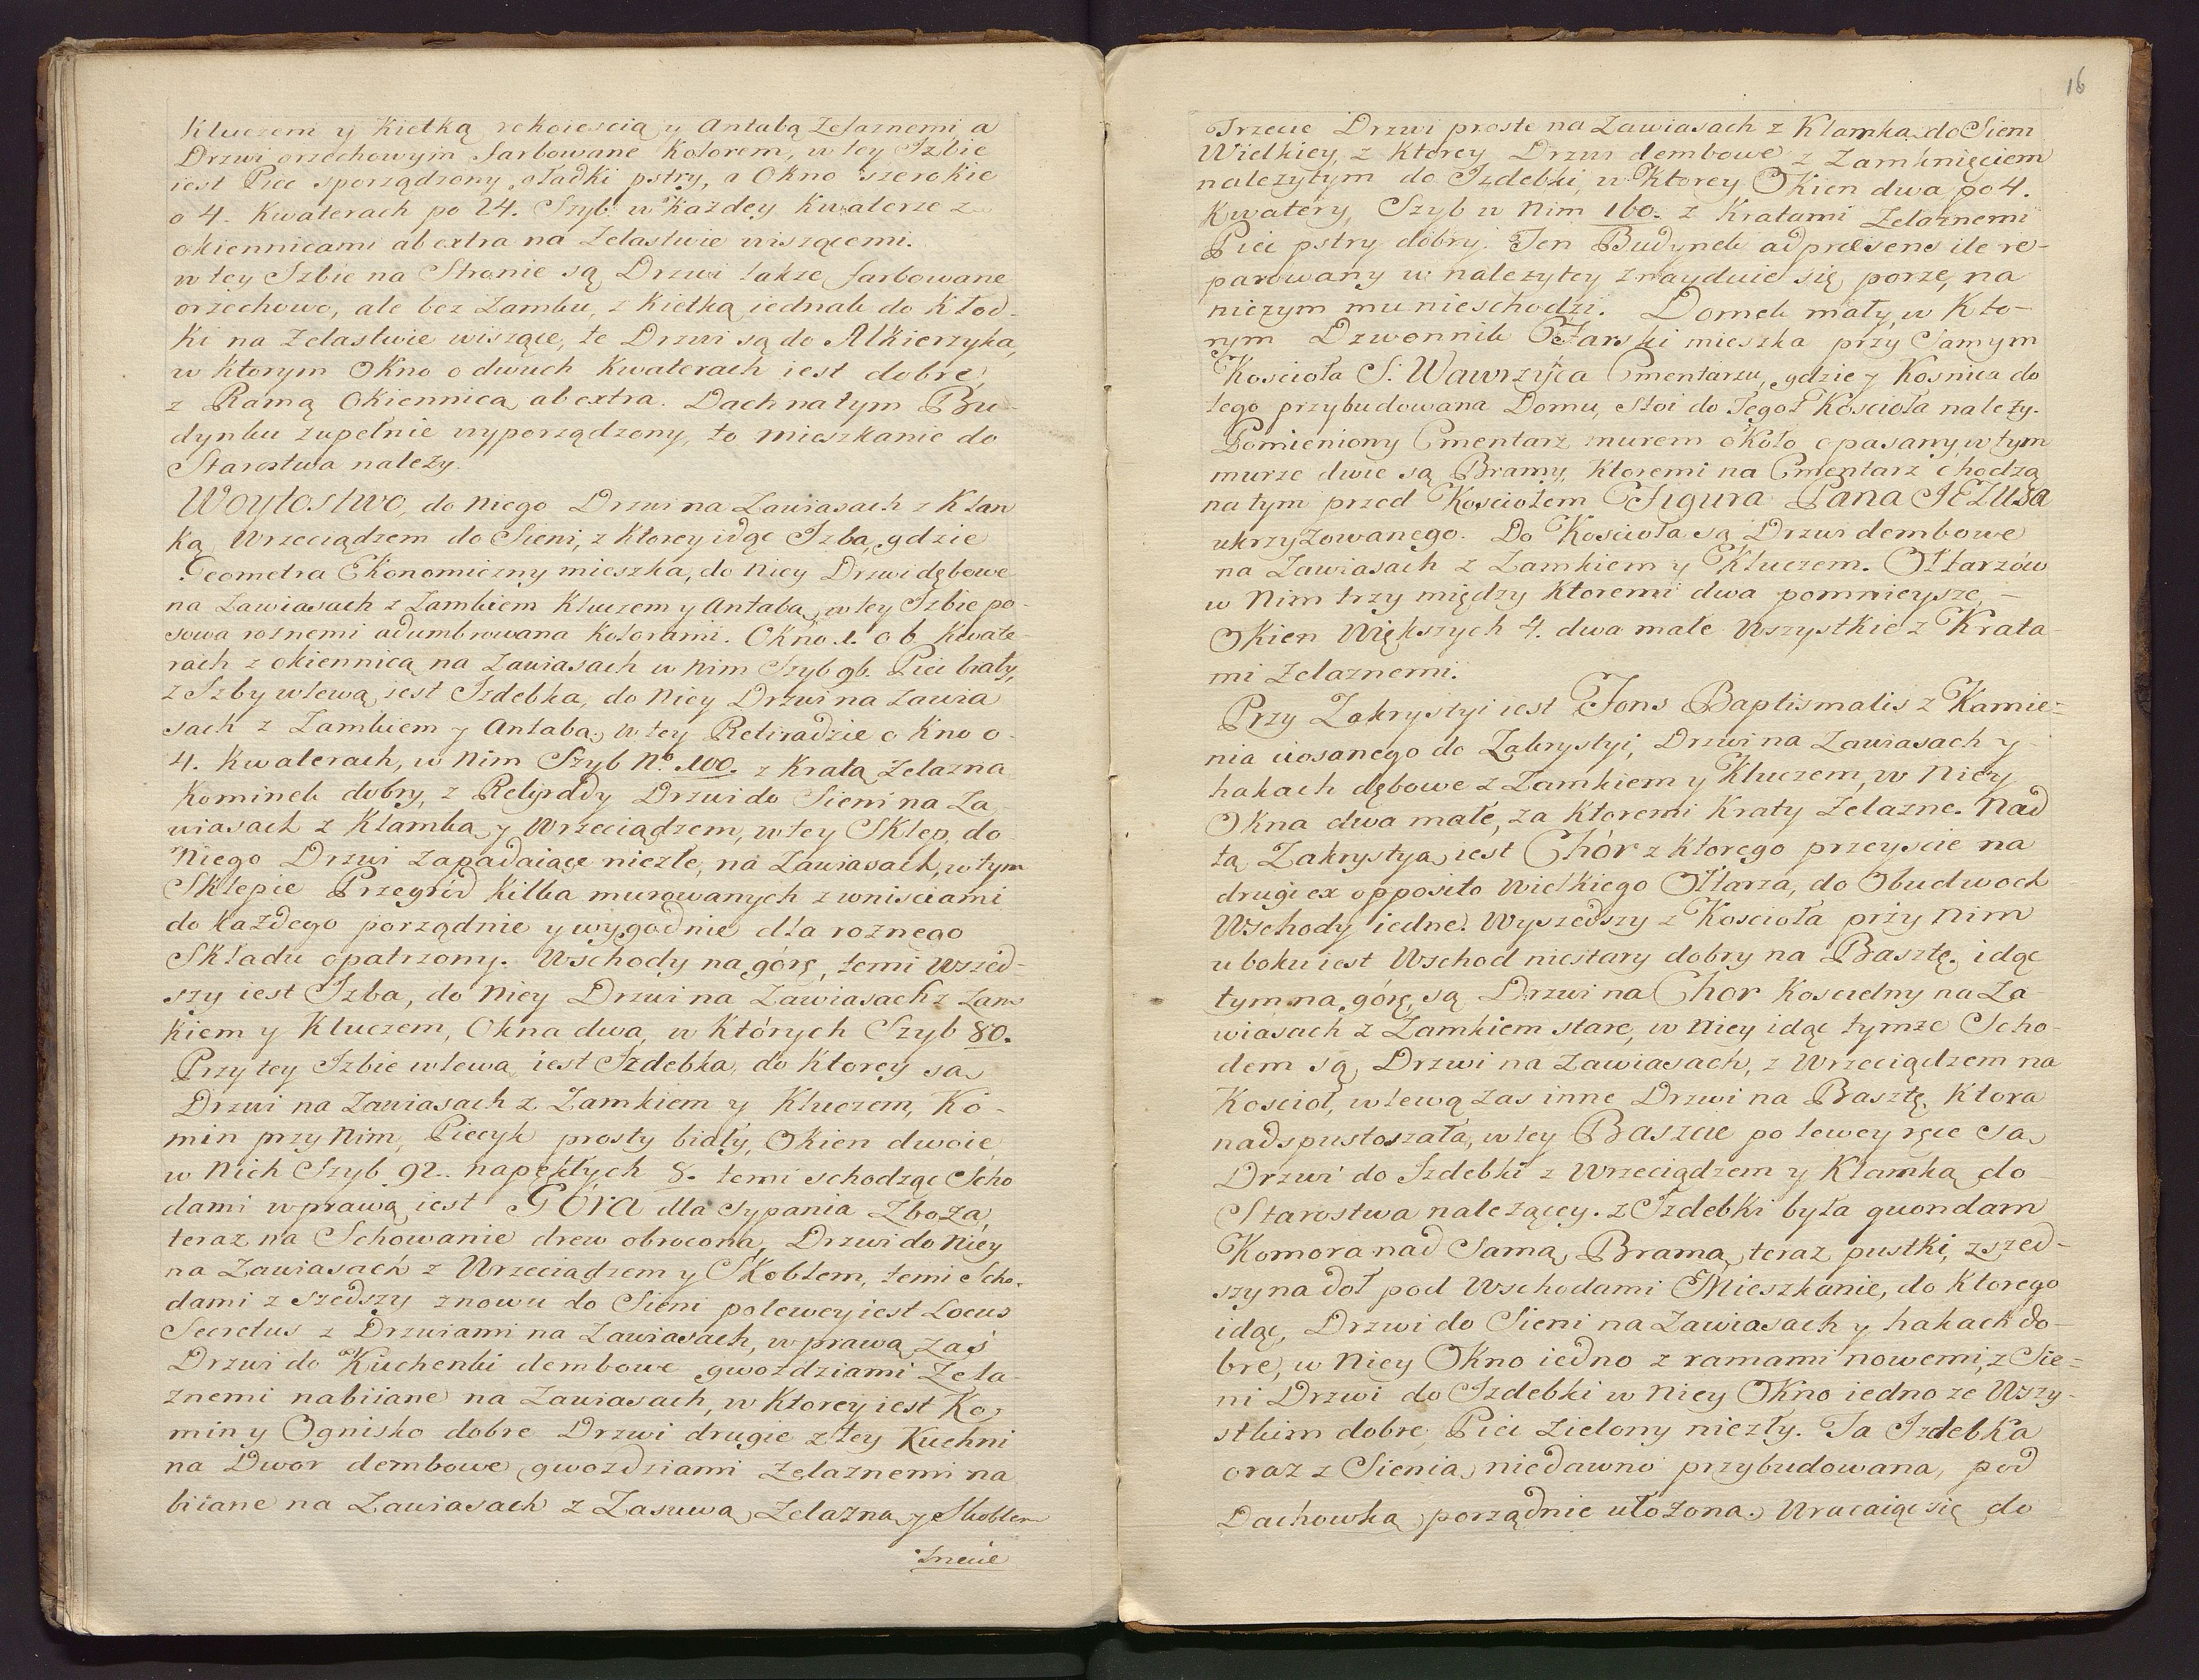 Kluczem y Kietką rękoiescią y Antabą Zelaznemi, a
Drzwi orzechowym farbowane Kolorem, w tey Izbie
iest Piec sporządzony gładki pstry, a Okno szerokie
o 4. Kwaterach po 24. Szyb w każdey Kwaterze z
okiennicami ab extra na Zelastwie wiszącemi.
w tey Izbie na Stronie są Drzwi także farbowane
orzechowo, ale bez Zamku, z Kietką iednak do Kłod-
ki na Zelastwie wiszące, te Drzwi są do Alkierzyka,
w ktorym Okno o dwuch Kwaterach iest dobre,
z Ramą Okiennica ab extra. Dach na tym Bu-
dynku zupełnie wyporządzony, to mieszkanie do
Starostwa należy.
Woytostwo, do niego Drzwi na Zawiasach z Klam
ką Wrzeciądzem do Sieni, z ktorey idąc Izba, gdzie
Geometra Ekonomiczny mieszka, do niey Drzwi dębowe
na Zawiasach z Zamkiem Kluczem y Antabą, w tey Izbie po-
sowa rożnemi adumbrowana Kolorami. Okno 1. o 6 Kwate-
rach z okiennicą na Zawiasach w nim Szyb 96. Piec biały,
z Izby w lewą iest Izdebka, do niey Drzwi na Zawia
sach z Zamkiem y Antabą, w tey Retiradzie okno o
4. Kwaterach, w nim Szyb No. 100. z Kratą Zelazną
Kominek dobry, z Retyrady Drzwi do Sieni na Za-
wiasach z Klamką y Wrzeciądzem, w tey Sklep, do
Niego Drzwi zapadaiące niezłe, na Zawiasach, w tym
Sklepie Przegród kilka murowanych z wniściami
do każdego porządnie y wygodnie dla rożnego
Składu opatrzony. Wschody na górę, temi wszed-
szy iest Izba, do niey Drzwi na Zawiasach z Zam
kiem y Kluczem, Okna dwa, w których Szyb 80.
Przy tey Izbie w lewą iest Izdebka, do ktorey są
Drzwi na Zawiasach z Zamkiem y Kluczem, Ko-
min przy nim, Piecyk prosty biały, Okien dwoie,
w nich Szyb 92. napękłych 8. temi schodząc Scho
dami w prawą iest Góra dla sypania Zboża,
teraz na Schowanie drew obrocona, Drzwi do niey
na Zawiasach z Wrzeciądzem y Skoblem, temi Scho-
dami z szedszy znowu do Sieni po lewey iest Locus
Secretus z Drzwiami na Zawiasach, w prawą zaś
Drzwi do Kuchenki dembowe gwoździami Zela-
znemi nabiiane na Zawiasach, w ktorey iest Ko-
min y Ognisko dobre Drzwi drugie z tey Kuchni
na Dwor dembowe gwozdziami Zelaznemi na
biiane na Zawiasach z Zasuwą Zelazną y Skoblem
Trzecie
16
Trzecie Drzwi proste na Zawiasach z Klamką do Sieni
Wielkiey, z ktorey Drzwi dembowe z Zamknięciem
należytym do Izdebki, w ktorey Okien dwa po 4.
Kwatery, Szyb w nim 160. z Kratami Zelaznemi
Piec pstry dobry. Ten Budynek ad præsens ile re-
parowany w należytey znayduie się porze, na
niczym mu nieschodzi. Domek mały, w Kto-
rym Dzwonnik Farski mieszka przy Samym
Kościoła S. Wawrzyńca Cmentarzu, gdzie y Kosnica do
tego przybudowana Domu, stoi do Tegoż Kościoła należy.
Pomieniony Cmentarz murem około opasany, w tym
murze dwie są Bramy, ktoremi na Cmentarz chodzą
na tym przed Kosciołem Figura Pana JEZUSA
ukrzyżowanego. Do Koscioła są Drzwi dembowe
na Zawiasach z Zamkiem y Kluczem. Ołtarzów
w nim trzy między ktoremi dwa pomnieysze, -
Okien Większych 4. dwa małe Wszystkie z Krata
mi Zelaznemi.
Przy Zakrystyi iest Fons Baptismalis z Kamie=
nia ciosanego do Zakrystyi, Drzwi na Zawiasach y
hakach dębowe z Zamkiem y Kluczem, w niey
Okna dwa małe, za ktoremi Kraty Zelazne. Nad
tą Zakrystyą iest Chór z ktorego przeyscie na
drugi ex opposito Wielkiego Ołtarza, do Obudwoch
Wschody iedne. Wyszedszy z Koscioła przy nim
u boku iest Wschod niestary dobry na Basztę, idąc
tym na górę, są Drzwi na Chor Koscielny na Za-
wiasach z Zamkiem stare, w niey idąc tymże Scho-
dem są Drzwi na Zawiasach, z Wrzeciądzem na
Kościoł, w lewą zas inne Drzwi na Basztę, Ktora
nadspustoszała, w tey Baszcie po lewey ręce są
Drzwi do Izdebki z Wrzeciądzem y Klamką do
Starostwa należącey. z Izdebki była quondam
Komora nad Samą Bramą, teraz pustki, zszed-
szy na doł pod Wschodami Mieszkanie, do ktorego
idąc, Drzwi do Sieni na Zawiasach y hakach do-
bre, w niey Okno iedno z ramami nowemi, z Sie=
ni Drzwi do Izdebki w niey Okno iedno ze Wszy-
stkim dobre, Piec zielony niezły. Ta Izdebka
oraz z Sienią niedawno przybudowana, pod
Dachowką porządnie ułożona. Wracaiąc się do